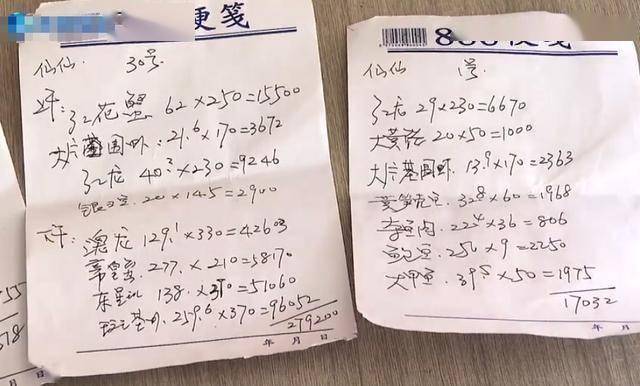 便笺
仙仙 30号
上午: 红花蟹 62×250=15500
大片基围虾: 21.6×170=3672
红龙 40.2×230=9246
20×145=2900
下午: 澳龙 129.1×330=42603
帝皇蟹 277.×210=58170
东星斑 138.×370=51060
259.6×370=96052
279200
年 月 日
便笺
仙仙 1号
红龙 29×230=6670
20×50=1000
大片基围虾 13.9×170=2363
32.8×60=1968
22.4×36=806
250×9=2250
大甲 39.5×50=1975
17032
年 月 日
55
678